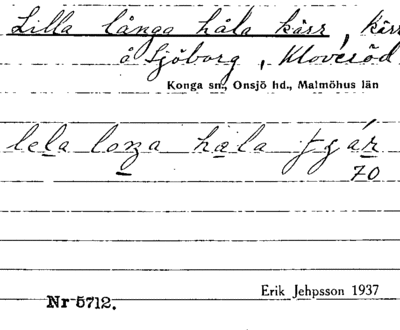 Lilla långa håla kärr, kärr
å Sjöborg, Klövesöd
Konga sn., Onsjö hd., Malmöhus län
lela loŋa hala
70
Erik Jehpsson 1937
Nr 5712.